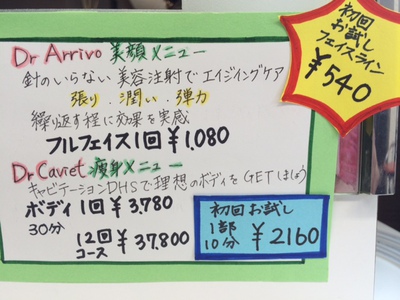 初回
お試し
フェイスライン
￥540
Dr Arrivo 美顔メニュー
針のいらない美容注射でエイジングケア
張り．潤い．弾力
繰り返す程に効果を実感
フルフェイス1回￥1,080
Dr Caviet 痩身メニュー
キャビテーションDHSで理想のボディをGETしましょう
ボディ 1回￥3,780
30分
12回 ￥37,800
コース
初回お試し
1部 ￥2160
10分